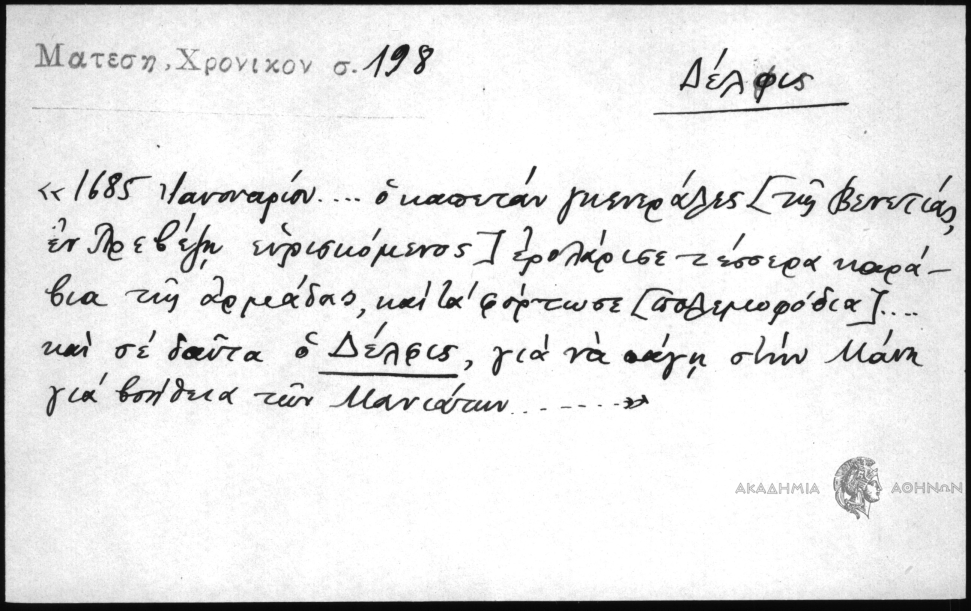 Ματεση, Χρονικον σ. 198
Δέλφις
«1685 Ἰανουαρίου.... ὁ καπετάν γκενεράλες [τῆς Βενετίας,
ἐν Πρεβέζῃ εὑρισκόμενος] ἐρολάρισε τέσσερα καρά-
βια τῆς ἀρμάδας, καὶ τά φόρτωσε [πολεμοφόδια]....
καὶ σέ δαῦτα ὁ Δέλφις, γιά νὰ πάγῃ στήν Μάνη
γιά βοήθεια τῶν Μανιάτων.......»
ΑΚΑΔΗΜΙΑ ΑΘΗΝΩΝ